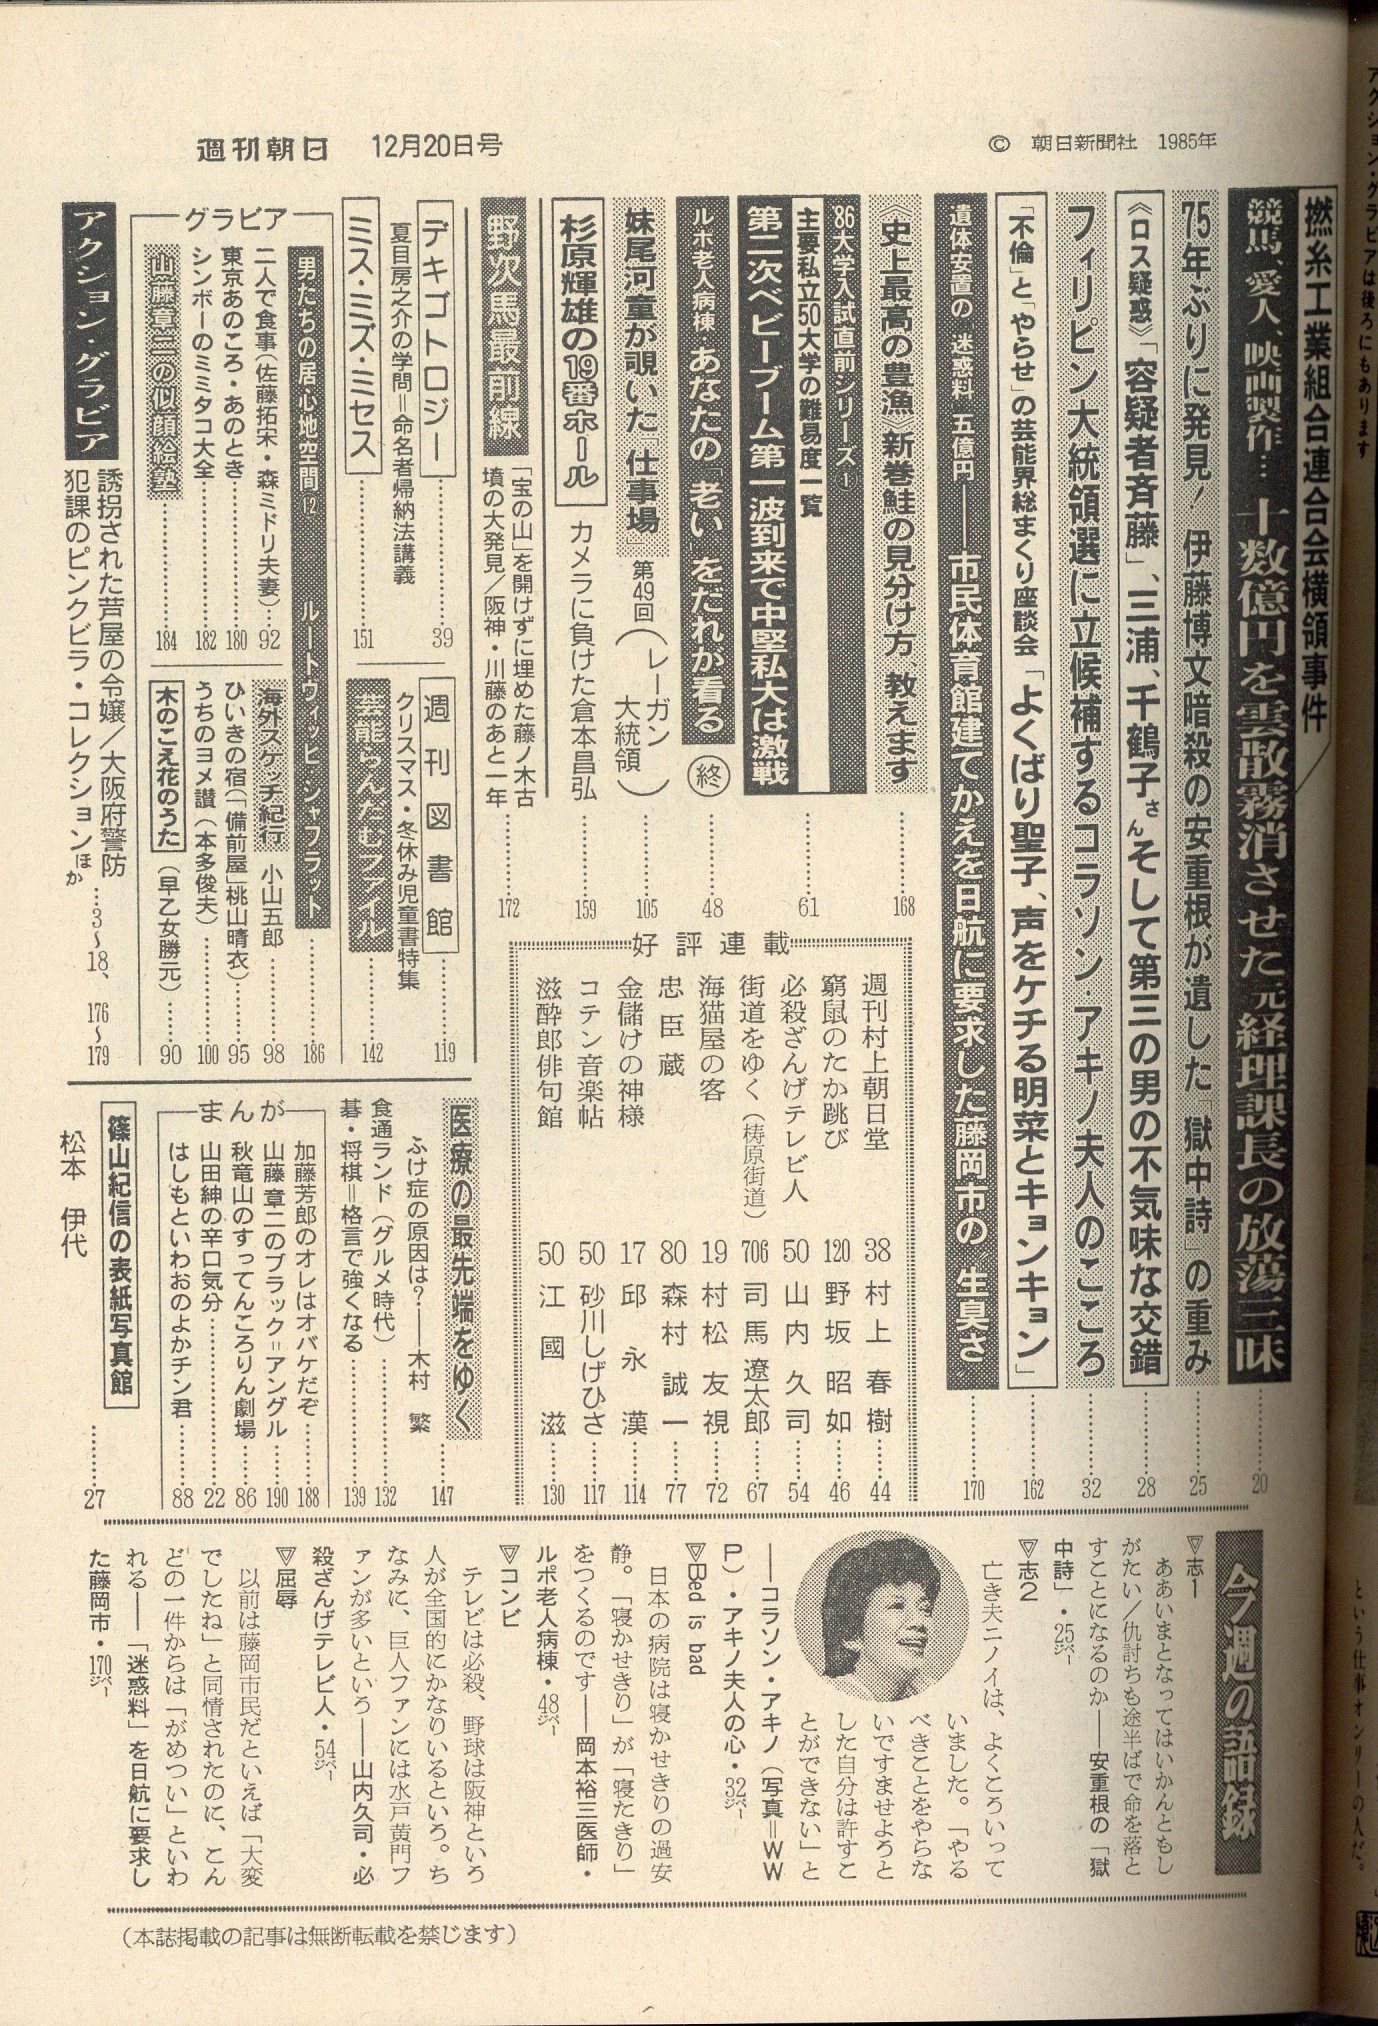 週刊朝日　12月20日号
© 朝日新聞社　1985年
撚糸工業組合連合会横領事件
競馬、愛人、映画製作…十数億円を雲散霧消させた元経理課長の放蕩三昧……20
75年ぶりに発見！伊藤博文暗殺の安重根が遺した「獄中詩」の重み……25
《ロス疑惑》「容疑者斉藤」、三浦、千鶴子さんそして第三の男の不気味な交錯……28
フィリピン大統領選に立候補するコラソン・アキノ夫人のこころ……32
「不倫」と「やらせ」の芸能界総まくり座談会「よくばり聖子、声をケチる明菜とキョンキョン」……162
遺体安置の〝迷惑料〟五億円――市民体育館建てかえを日航に要求した藤岡市の〝生臭さ〟……170
《史上最高の豊漁》新巻鮭の見分け方、教えます……168
'86大学入試直前シリーズ①
主要私立50大学の難易度一覧
第二次ベビーブーム第一波到来で中堅私大は激戦……61
ルポ老人病棟・あなたの「老い」をだれが看る　終……48
妹尾河童が覗いた「仕事場」　第49回（レーガン大統領）……105
杉原輝雄の19番ホール　カメラに負けた倉本昌弘……159
野次馬最前線　「宝の山」を開けずに埋めた藤ノ木古
墳の大発見／阪神・川藤のあと一年……172
デキゴトロジー……39
夏目房之介の学問＝命名者帰納法講義
ミス・ミズ・ミセス……151
週刊図書館……119
クリスマス・冬休み児童書特集
芸能らんだむファイル……142
グラビア
男たちの居心地空間⑫　ルートウィッヒ・シャフラット……186
二人で食事（佐藤拓宋・森ミドリ夫妻）…92
東京あのころ・あのとき……180
シンボーのミミタコ大全……182
山藤章二の似顔絵塾……184
海外スケッチ紀行　小山五郎……98
ひいきの宿（「備前屋」桃山晴衣）……95
うちのヨメ讃（本多俊夫）……100
木のこえ花のうた（早乙女勝元）……90
アクション・グラビア　誘拐された芦屋の令嬢／大阪府警防
犯課のピンクビラ・コレクションほか…3〜18、176〜179
好評連載
週刊村上朝日堂　38　村上春樹……44
窮鼠のたか跳び　120　野坂昭如……46
必殺ざんげテレビ人　50　山内久司……54
街道をゆく（梼原街道）　706　司馬遼太郎……67
海猫屋の客　19　村松友視……72
忠臣蔵　80　森村誠一……77
金儲けの神様　17　邱永漢……114
コテン音楽帖　50　砂川しげひさ……117
滋酔郎俳句館　50　江國滋……130
医療の最先端をゆく……147
ふけ症の原因は？――木村　繁
食通ランド（グルメ時代）……132
碁・将棋＝格言で強くなる……139
まんが
加藤芳郎のオレはオバケだぞ……188
山藤章二のブラック＝アングル……190
秋竜山のすってんころりん劇場……86
山田紳の辛口気分……22
はしもといわおのよかチン君……88
篠山紀信の表紙写真館……27
松本　伊代
今週の語録
▽志1
ああいまとなってはいかんともし
がたい／仇討ちも途半ばで命を落と
すことになるのか――安重根の「獄
中詩」・25ページ
▽志2
亡き夫ニノイは、よくころいって
いました。「やる
べきことをやらな
いですませよろと
した自分は許すこ
とができない」と
――コラソン・アキノ（写真＝WW
P）・アキノ夫人の心・32ページ
▽Bed is bad
日本の病院は寝かせきりの過安
静。「寝かせきり」が「寝たきり」
をつくるのです――岡本裕三医師・
ルポ老人病棟・48ページ
▽コンビ
テレビは必殺、野球は阪神といろ
人が全国的にかなりいるといろ。ち
なみに、巨人ファンには水戸黄門フ
ァンが多いといろ――山内久司・必
殺ざんげテレビ人・54ページ
▽屈辱
以前は藤岡市民だといえば「大変
でしたね」と同情されたのに、こん
どの一件からは「がめつい」といわ
れる――「迷惑料」を日航に要求し
た藤岡市・170ページ
（本誌掲載の記事は無断転載を禁じます）
アクション・グラビアは後ろにもあります
という仕事オンリーの人だ。」